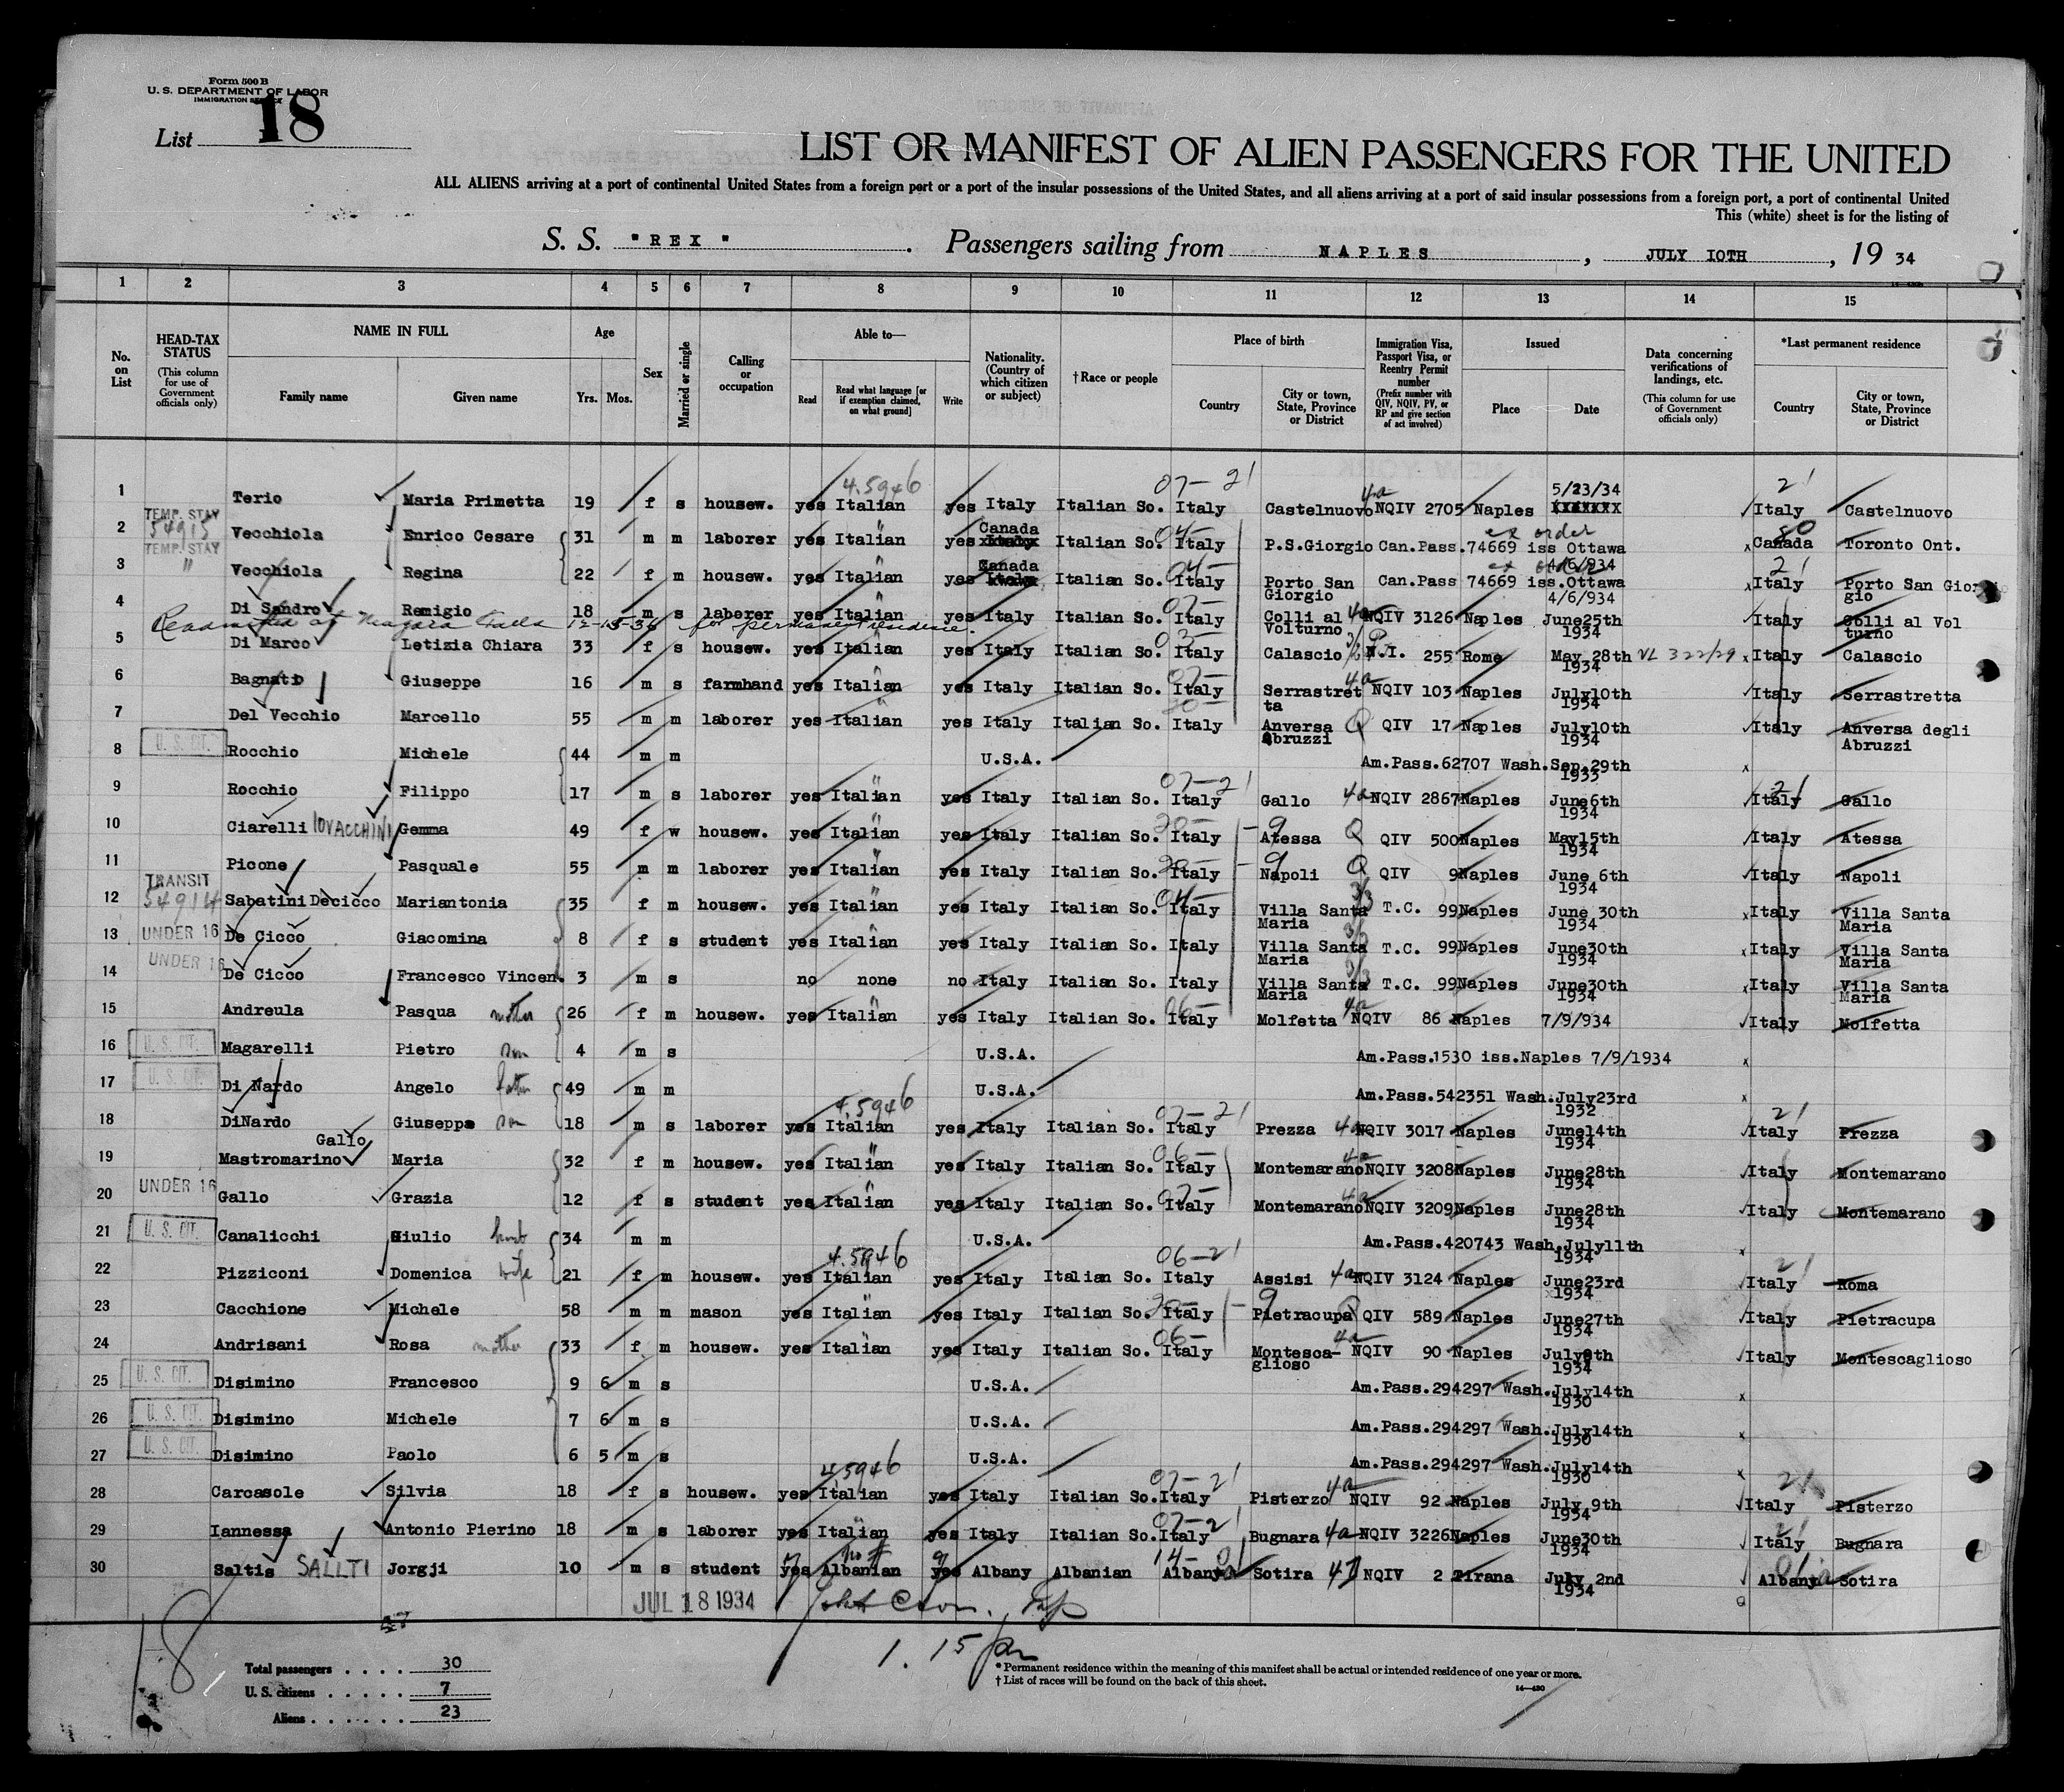 Form 500 B
U. S. DEPARTMENT OF LABOR
IMMIGRATION SERVICE
List 18
LIST OR MANIFEST OF ALIEN PASSENGERS FOR THE UNITED
ALL ALIENS arriving at a port of continental United States from a foreign port or a port of the insular possessions of the United States, and all aliens arriving at a port of said insular possessions from a foreign port, a port of continental United
This (white) sheet is for the listing of
S. S. "REX". Passengers sailing from NAPLES, JULY IOTH, 19 34
1 2 3 4 5 6 7 8 9 10 11 12 13 14 15
No. on List
HEAD-TAX STATUS (This column for use of Government officials only)
NAME IN FULL Family name Given name
Age Yrs. Mos.
Sex
Married or single
Calling or occupation
Able to— Read Read what language [or if exemption claimed, on what ground] Write
Nationality. (Country of which citizen or subject)
†Race or people
Place of birth Country City or town, State, Province or District
Immigration Visa, Passport Visa, or Reentry Permit number (Prefix number with QIV, NQIV, PV, or RP and give section of act involved)
Issued Place Date
Data concerning verifications of landings, etc. (This column for use of Government officials only)
*Last permanent residence Country City or town, State, Province or District
4.5946 07-21 4a 5/23/34 21
1 Terio Maria Primetta 19 f s housew. yes Italian yes Italy Italian So. Italy Castelnuovo NQIV 2705 Naples Italy Castelnuovo
2 TEMP. STAY 54915 Vecchiola Enrico Cesare 31 m m laborer yes Italian " yes Canada Italian So. 04- Italy P.S.Giorgio Can.Pass.74669 iss Ottawa ex order 4/6/934 Canada Toronto Ont.
3 TEMP. STAY " Vecchiola Regina 22 f m housew. yes Italian " yes Canada Italian So. 04- Italy Porto San Giorgio Can.Pass 74669 iss.Ottawa 4/6/934 21 Italy Porto San Giorgio
4 Di Sandro Remigio 18 m s laborer yes Italian " yes Italy Italian So. 07- Italy Colli al Volturno 4a NQIV 3126 Naples June25th 1934 Italy Colli al Volturno
Readmitted at Niagara Falls 12-15-36 for permanent residence.
5 Di Marco Letizia Chiara 33 f s housew. yes Italian yes Italy Italian So. 03- Italy Calascio N.I. 255 Rome May 28th 1934 VL 322/29 Italy Calascio
6 Bagnato Giuseppe 16 m s farmhand yes Italian " yes Italy Italian So. 07- Italy Serrastretta 4a NQIV 103 Naples July10th 1934 Italy Serrastretta
7 Del Vecchio Marcello 55 m m laborer yes Italian " yes Italy Italian So. 20- Italy Anversa Abruzzi Q QIV 17 Naples July10th 1934 Italy Anversa degli Abruzzi
8 U. S. CIT. Rocchio Michele 44 m m U.S.A. Am.Pass.62707 Wash.Sep.29th 1933
9 Rocchio Filippo 17 m s laborer yes Italian " yes Italy Italian So. 07-21 Italy Gallo 4a NQIV 2867 Naples June6th 1934 21 Italy Gallo
10 Ciarelli IOVACCHINI Gemma 49 f w housew. yes Italian " yes Italy Italian So. 20- Italy -9 Atessa Q QIV 500 Naples May15th 1934 Italy Atessa
11 Picone Pasquale 55 m m laborer yes Italian " yes Italy Italian So. 20- Italy -9 Napoli Q QIV 9 Naples June 6th 1934 Italy Napoli
12 TRANSIT 54914 Sabatini Decicco Mariantonia 35 f m housew. yes Italian " yes Italy Italian So. 04- Italy Villa Santa Maria 3/3 T.C. 99 Naples June 30th 1934 Italy Villa Santa Maria
13 UNDER 16 De Cicco Giacomina 8 f s student yes Italian " yes Italy Italian So. Italy Villa Santa Maria 3/3 T.C. 99 Naples June30th 1934 Italy Villa Santa Maria
14 UNDER 16 De Cicco Francesco Vincen. 3 m s no none no Italy Italian So. Italy Villa Santa Maria 3/3 T.C. 99 Naples June30th 1934 Italy Villa Santa Maria
15 Andreula Pasqua mother 26 f m housew. yes Italian " yes Italy Italian So. 06- Italy Molfetta 4a NQIV 86 Naples 7/9/934 Italy Molfetta
16 U. S. CIT. Magarelli Pietro son 4 m s U.S.A. Am.Pass.1530 iss.Naples 7/9/1934
17 U. S. CIT. Di Nardo Angelo father 49 m m U.S.A. Am.Pass.542351 Wash.July23rd 1932
18 DiNardo Giuseppe son 18 m s laborer yes 4.5946 Italian yes Italy Italian So. 07-21 Italy Prezza 4a NQIV 3017 Naples June14th 1934 21 Italy Prezza
19 Mastromarino Gallo Maria 32 f m housew. yes Italian " yes Italy Italian So. 06- Italy Montemarano 4a NQIV 3208 Naples June28th 1934 Italy Montemarano
20 UNDER 16 Gallo Grazia 12 f s student yes Italian " yes Italy Italian So. 07- Italy Montemarano 4a NQIV 3209 Naples June28th 1934 Italy Montemarano
21 U. S. CIT. Canalicchi Giulio husb 34 m m U.S.A. Am.Pass.420743 Wash.July11th 1934
22 Pizziconi Domenica wife 21 f m housew. yes 4.5946 Italian yes Italy Italian So. 06-21 Italy Assisi 4a NQIV 3124 Naples June23rd 1934 21 Italy Roma
23 Cacchione Michele 58 m m mason yes Italian " yes Italy Italian So. 20- Italy -9 Pietracupa Q QIV 589 Naples June27th 1934 Italy Pietracupa
24 Andrisani Rosa mother 33 f m housew. yes Italian " yes Italy Italian So. 06- Italy Montescaglioso 4a NQIV 90 Naples July9th 1934 Italy Montescaglioso
25 U. S. CIT. Disimino Francesco 9 6 m s U.S.A. Am.Pass.294297 Wash.July14th 1930
26 U. S. CIT. Disimino Michele 7 6 m s U.S.A. Am.Pass.294297 Wash.July14th 1930
27 U. S. CIT. Disimino Paolo 6 5 m s U.S.A. Am.Pass.294297 Wash.July14th 1930
28 Carcasole Silvia 18 f s housew. yes 4.5946 Italian yes Italy Italian So. 07-21 Italy Pisterzo 4a NQIV 92 Naples July 9th 1934 21 Italy Pisterzo
29 Iannessa Antonio Pierino 18 m s laborer yes Italian " yes Italy Italian So. 07-21 Italy Bugnara 4a NQIV 3226 Naples June30th 1934 Italy Bugnara
30 Saltis SALLTI Jorgji 10 m s student yes Albanian yes Albany Albanian 14- Albany Sotira NQIV 2 Tirana July 2nd 1934 Albany Sotira
JUL 18 1934
1.15 pm
18
Total passengers . . . . 30
U. S. citizens . . . . . 7
Aliens . . . . . . 23
* Permanent residence within the meaning of this manifest shall be actual or intended residence of one year or more.
† List of races will be found on the back of this sheet.
14—430